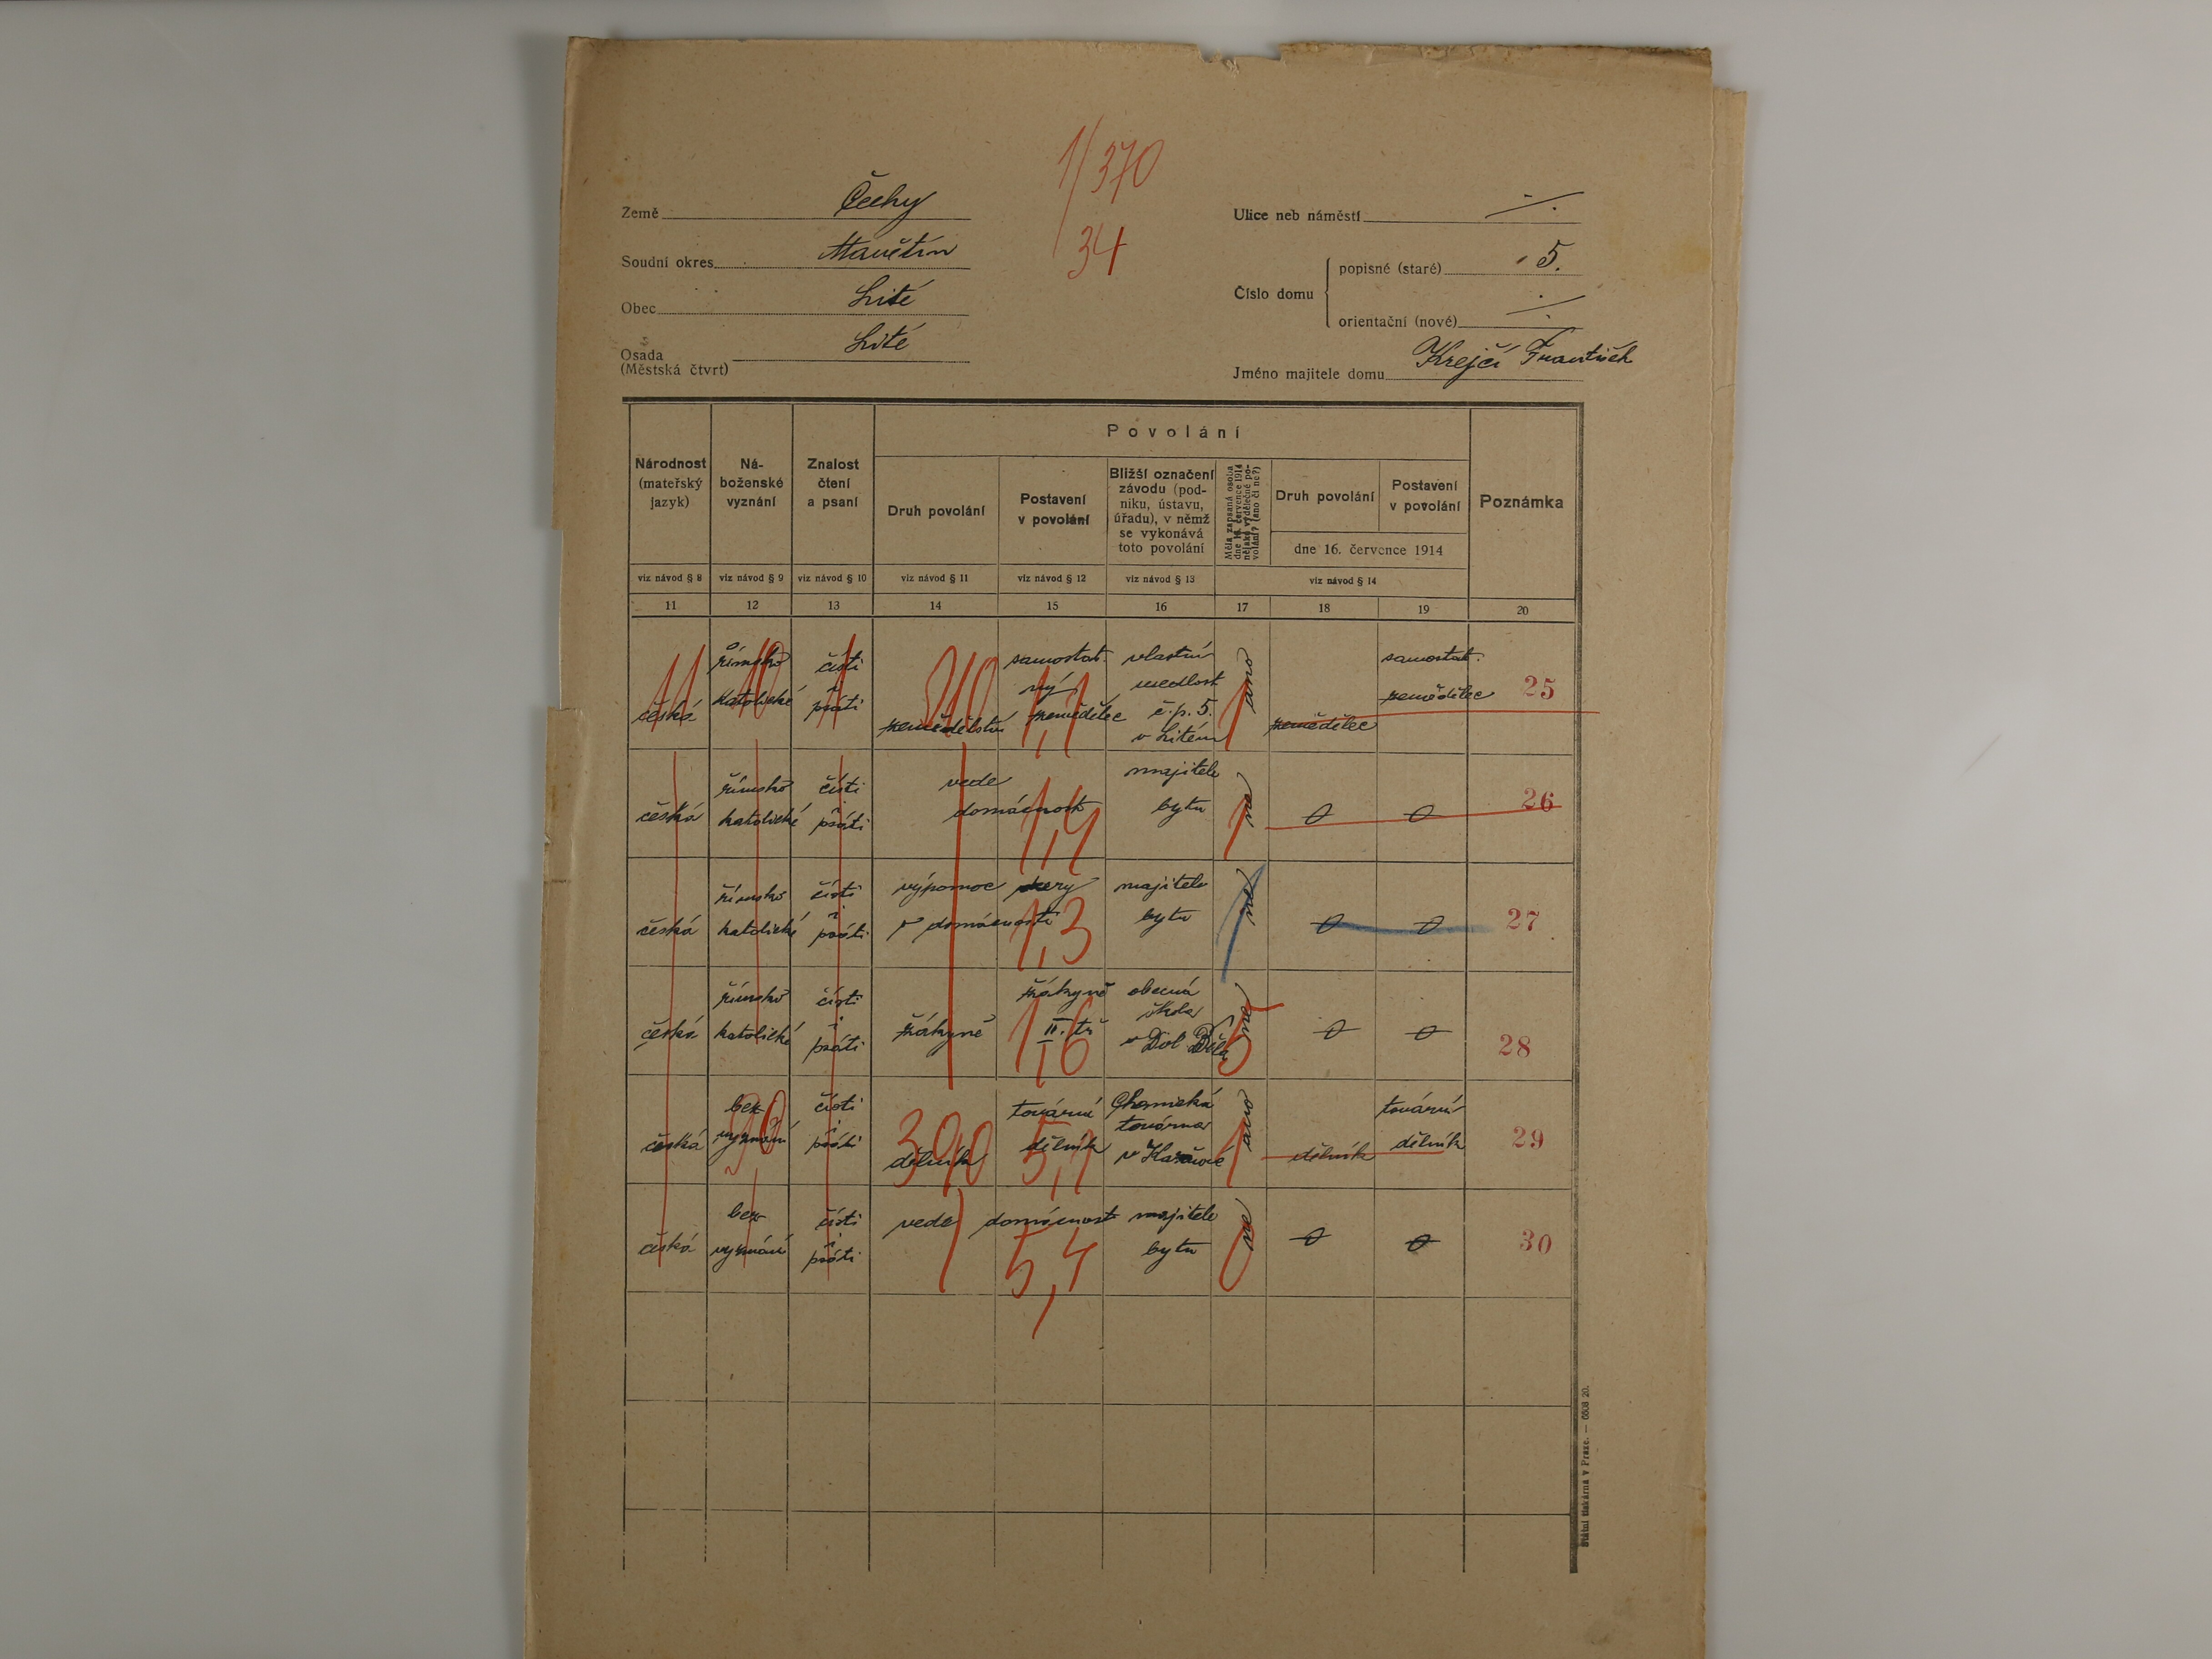 1/370
34
Země Čechy
Soudní okres Manětín
Obec Lité
Osada Lité
(Městská čtvrt)
Ulice neb náměstí ·/.
Číslo domu
popisné (staré) 5.
orientační (nové) ·/.
Jméno majitele domu Krejčí František
Povolání
Národnost
(mateřský
jazyk)
Ná-
boženské
vyznání
Znalost
čtení
a psaní
Druh povolání
Postavení
v povolání
Bližší označení
závodu (pod-
niku, ústavu,
úřadu), v němž
se vykonává
toto povolání
Měla zapsaná osoba
dne 16. července 1914
nějaké výdělečné po-
volání? (ano či ne?)
Druh povolání
Postavení
v povolání
dne 16. července 1914
Poznámka
viz návod § 8 viz návod § 9 viz návod § 10 viz návod § 11 viz návod § 12 viz návod § 13 viz návod § 14
11 12 13 14 15 16 17 18 19 20
česká
11
římsko
katolické
10
čísti
i
psáti
1
zemědělství
310
samostat.
ný
zemědělec
1,1
vlastní
usedlost
č.p. 5.
v Litém
ano
1
zemědělec
samostat.
zemědělec
25
česká
římsko
katolické
čísti
psáti
vede
domácnost
1,4
majitele
bytu
ne
1
0
0
26
česká
římsko
katolické
čísti
i
psáti
výpomoc dcery
v domácnosti
1,3
majitele
bytu
ne
0
0
27
česká
římsko
katolické
čísti
i
psáti
žákyně
žákyně
II. tř
1,6
obecná
škola
v Dol. Bělé
ne
5
0
0
28
česká
bez
vyznání
90
čísti
i
psáti
dělník
390
tovární
dělník
5,1
Chemická
továrna
v Kaznově
ano
1
dělník
tovární
dělník
29
česká
bez
vyznání
čísti
i
psáti
vede domácnost
5,4
majitele
bytu
ne
0
0
30
Státní tiskárna v Praze. — 6508 20.